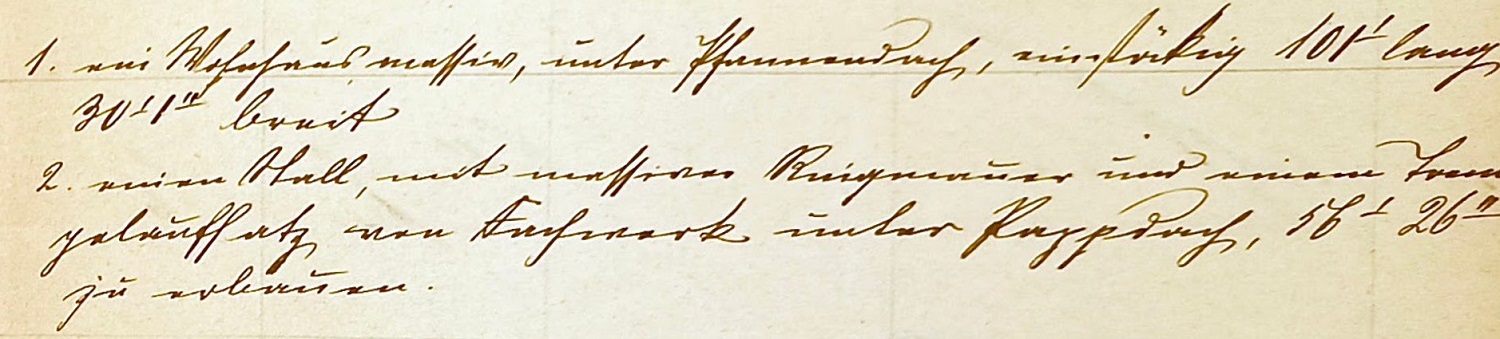 1. ein Wohnhaus massiv, unter Pfannendach, einstöckig 101' lang
30' 1" breit
2. einen Stall, mit massiver Ringmauer und einem Drem
pelaufsatz von Fachwerk unter Pappdach, 56' 26"
zu erbauen.